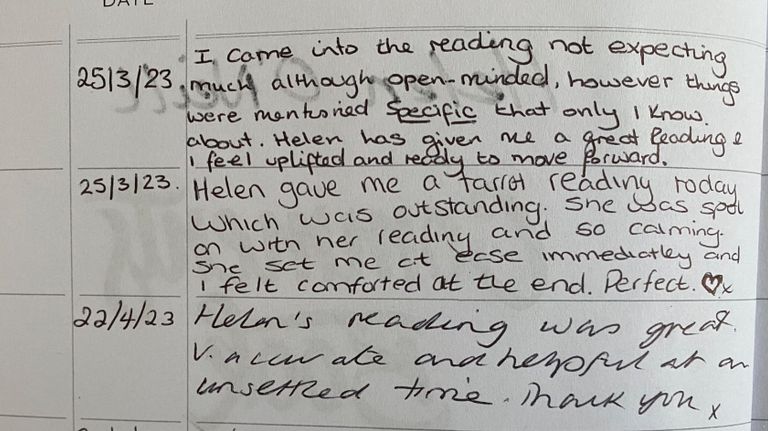 DATE
I came into the reading not expecting
25/3/23 much although open-minded, however things
were mentioned specific that only I know
about. Helen has given me a great reading &
I feel uplifted and ready to move forward.
25/3/23. Helen gave me a tarrot reading today
which was outstanding. She was spot
on with her reading and so calming.
She set me at ease immediatley and
I felt comforted at the end. Perfect. ♡x
22/4/23 Helen's reading was great.
V. accurate and helpful at an
unsettled time. Thank you x